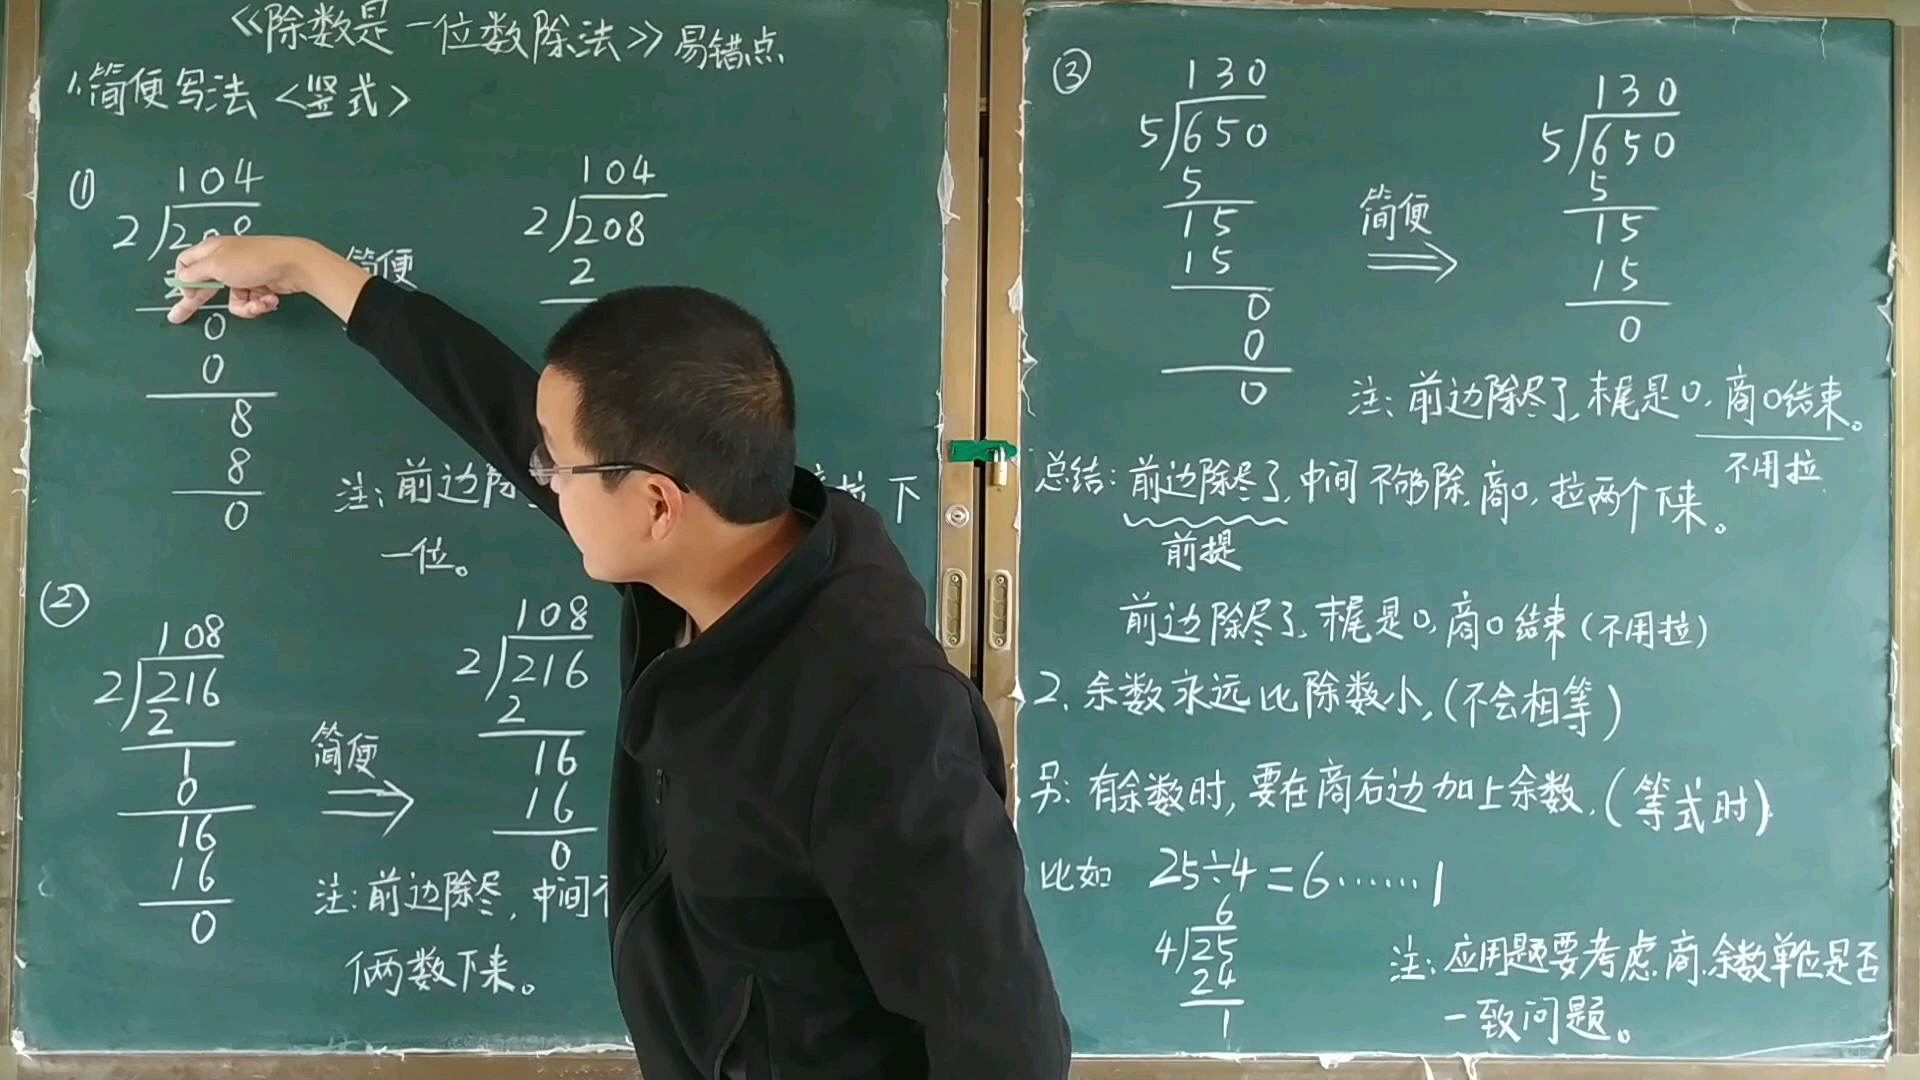 《除数是一位数除法》易错点
1.简便写法<竖式>
①
104
2)208
2
0
0
8
8
0
简便
104
2)208
2
注:前边除 拉下
一位。
②
108
2)216
2
1
0
16
16
0
简便
⇒
108
2)216
2
16
16
0
注:前边除尽,中间
俩数下来。
③
130
5)650
5
15
15
0
0
0
简便
⇒
130
5)650
5
15
15
0
注:前边除尽了,末尾是0,商0结束。
不用拉
总结:前边除尽了,中间不够除,商0,拉两个下来。
前提
前边除尽了,末尾是0,商0结束(不用拉)
2.余数永远比除数小,(不会相等)
另:有余数时,要在商右边加上余数,(等式时)
比如 25÷4=6……1
6
4)25
24
1
注:应用题要考虑商.余数单位是否
一致问题。